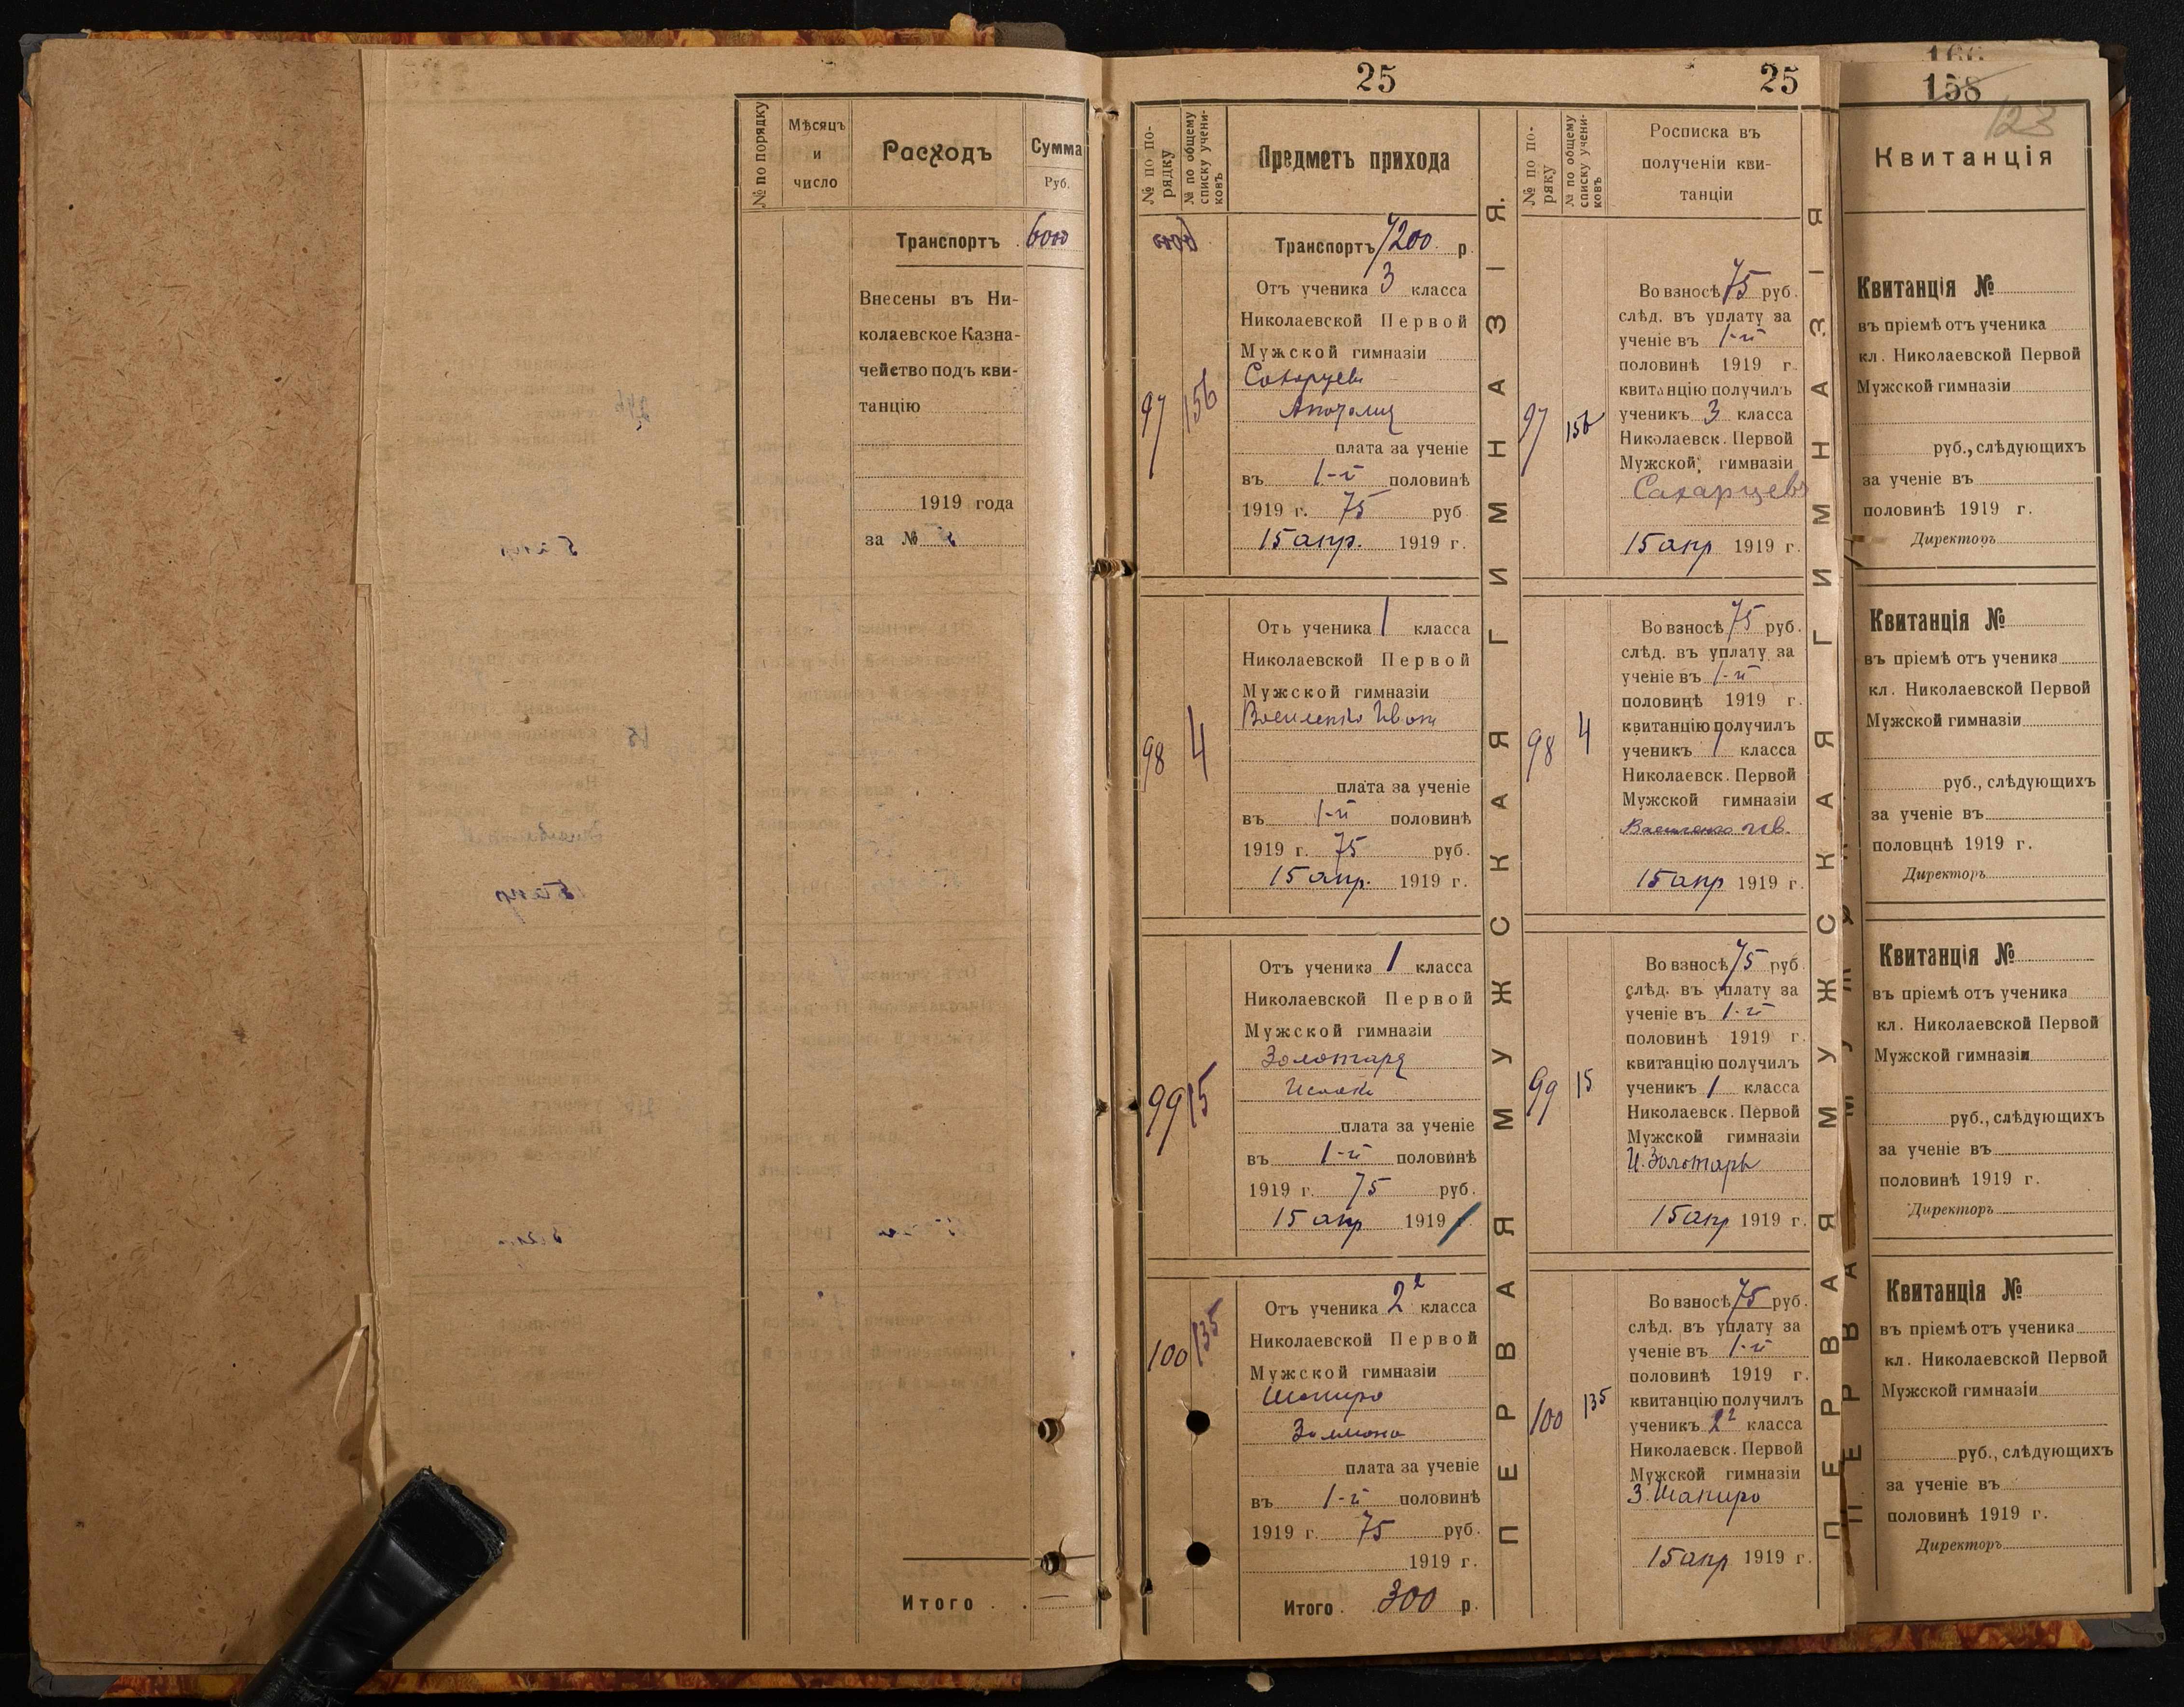 № по порядку
Мѣсяцъ
и
число
Расходъ
Сумма
Руб.
Транспортъ
Внесены въ Ни-
колаевское Казна-
чейство подъ кви-
танцію
1919 года
за №
Итого .
25
№ по по-
рядку
№ по общему
списку учени-
ковъ
Предметъ прихода
Транспортъ 7200 р
97
156
Отъ ученика 3 класса
Николаевской Первой
Мужской гимназіи
плата за ученіе
въ 1-й половинѣ
1919 г. 75 руб
15 апр. 1919 г.
98
4
Отъ ученика 1 класса
Николаевской Первой
Мужской гимназіи
Василенко
плата за ученіе
въ 1-й половинѣ
1919 г. 75 руб.
15 апр. 1919 г.
99
15
Отъ ученика 1 класса
Николаевской Первой
Мужской гимназіи
Золотарь
плата за ученіе
въ 1-й половинѣ
1919 г. 75 руб.
15 апр 1919
100
135
Отъ ученика 2² класса
Николаевской Первой
Мужской гимназіи
Шапиро
плата за ученіе
въ 1-й половинѣ
1919 г. 75 руб.
1919 г.
Итого . 300 р.
ПЕРВАЯ МУЖСКАЯ ГИМНАЗІЯ.
25
№ по по-
ряку
№ по общему
списку учени-
ковъ
Росписка въ
полученіи кви-
танціи
97
156
Во взносѣ 75 руб.
слѣд. въ уплату за
ученіе въ 1-й
половинѣ 1919 г.
квитанцію получилъ
ученикъ 3 класса
Николаевск. Первой
Мужской, гимназіи
Сахарцевъ
15 апр 1919 г.
98
4
Во взносѣ 75 руб.
слѣд. въ уплату за
ученіе въ 1-й
половинѣ 1919 г.
квитанцію получилъ
ученикъ 1 класса
Николаевск. Первой
Мужской гимназіи
Василенко Ив.
15 апр 1919 г.
99
15
Во взносѣ 75 руб
слѣд. въ уплату за
ученіе въ 1-й
половинѣ 1919 г.
квитанцію получилъ
ученикъ 1 класса
Николаевск. Первой
Мужской гимназіи
И. Золотарь
15 апр 1919 г.
100
135
Во взносѣ 75 руб.
слѣд. въ уплату за
ученіе въ 1-й
половинѣ 1919 г.
квитанцію получилъ
ученикъ 2² класса
Николаевск. Первой
Мужской гимназіи
З. Шапиро
15 апр 1919 г.
ПЕРВАЯ МУЖСКАЯ ГИМНАЗІЯ
166
158
123
Квитанція
Квитанція №
въ пріемѣ отъ ученика
кл. Николаевской Первой
Мужской гимназіи
руб., слѣдующихъ
за ученіе въ
половинѣ 1919 г.
Директоръ
Квитанція №
въ пріемѣ отъ ученика
кл. Николаевской Первой
Мужской гимназіи
руб., слѣдующихъ
за ученіе въ
половцнѣ 1919 г.
Директоръ
Квитанція №
въ пріемѣ отъ ученика
кл. Николаевской Первой
Мужской гимназіи
руб., слѣдующихъ
за ученіе въ
половинѣ 1919 г.
Директоръ
Квитанція №
въ пріемѣ отъ ученика
кл. Николаевской Первой
Мужской гимназіи
руб., слѣдующихъ
за ученіе въ
половинѣ 1919 г.
Директоръ